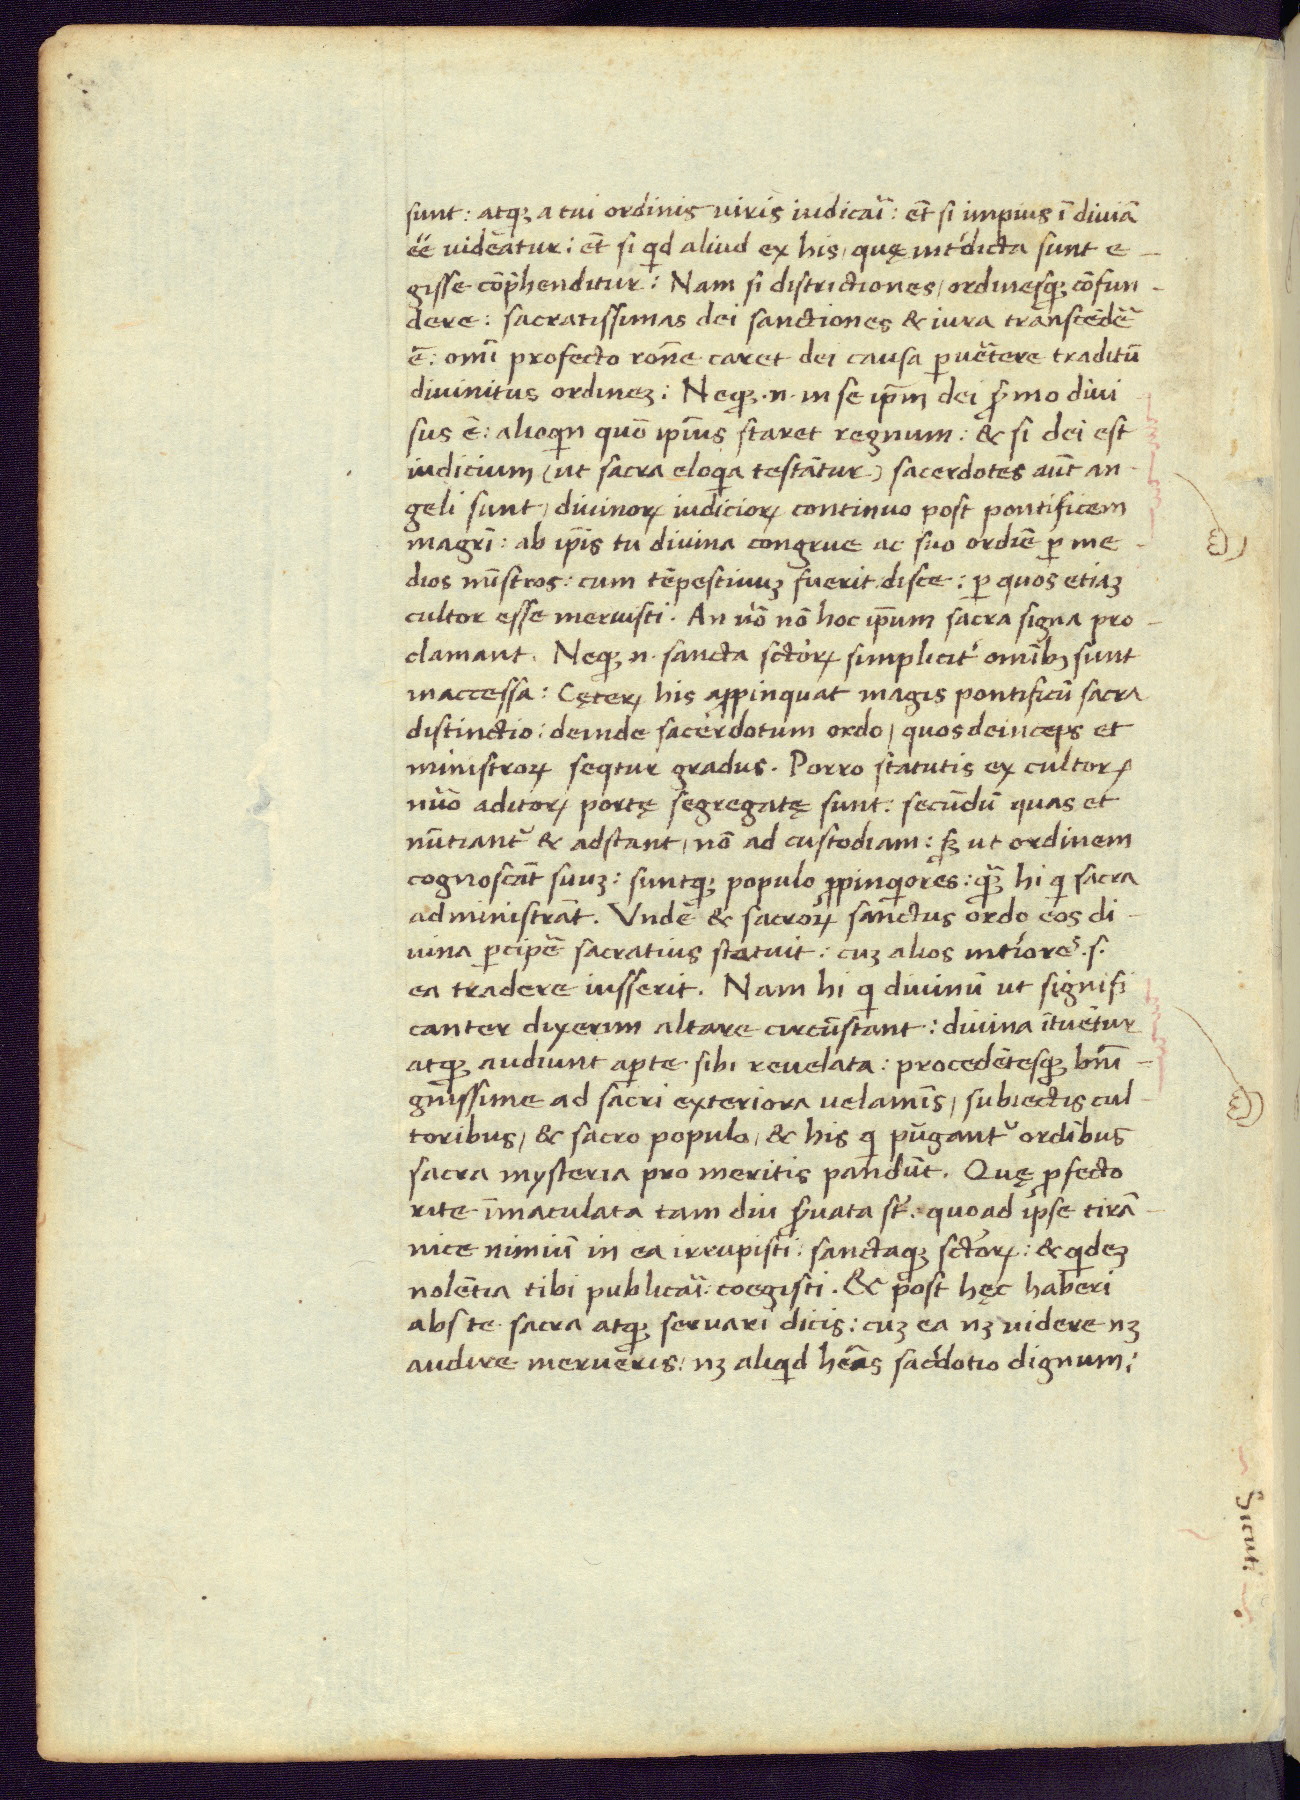 sunt: atqꝫ a tui ordinis uiris iudicaı̃: et̃ si impius ı̃ diuiã
eé uideatur: et̃ si qd aliud ex his, quę intdicta sunt e-
gisse cõphenditur: Nam si districtiones, ordinesqꝫ cõfun-
dere: sacratissimas dei sanctiones & iura transcẽdẽ
ẽ: omı̃ profecto rõne caret dei causa ꝑuẽtere traditũ
diuinitus ordinez: Neqꝫ .n. in se ip̃m dei s̃mo diui
sus ẽ: alioqin quõ ipı̃us staret regnum: & si dei est
iudicium (ut sacra eloqia testãtur) sacerdotes aũt an-
geli sunt, diuinoꝝ iudicioꝝ continuo post pontificem
magrı̃: ab ip̃is tu diuina congrue ac suo ordiẽ ꝑ me-
dios mı̃stros: cum tẽpestiuuꝫ fuerit disce: ꝑ quos etiaꝫ
cultor esse meruisti. An uõ nõ hoc ip̃um sacra signa pro-
clamant. Neqꝫ .n. sancta sctõꝝ simplicit omı̃bꝫ sunt
inaccessa: Cęteꝝ his aꝓpinquat magis pontificũ sacra
distinctio: deinde sacerdotum ordo, quos deinceps et
ministroꝝ seqtur gradus. Porro statutis ex cultoꝝ
nũo aditoꝝ portę segregatę sunt: secũdũ quas et
nũtiant & adstant, nõ ad custodiam: sꝫ ut ordinem
cognoscãt suuꝫ: suntqꝫ populo ꝓpinqiores: q̃ꝫ hi qi sacra
administrãt. Vnde & sacroꝝ sanctus ordo eos di-
uina ꝑcipẽ sacratius statuit: cuꝫ alios intiores .s.
ea tradere iusserit. Nam hi qi diuinũ ut signifi
canter dixerim altare circũstant: diuina ı̃tuẽtur
atqꝫ audiunt aꝑte sibi reuelata: procedẽtesqꝫ bnı̃-
gnı̃ssime ad sacri exteriora uelamı̃s, subiectis cul-
toribus, & sacro populo, & his qi pũgant ordı̃bus
sacra mysteria pro meritis pandũt. Quę ꝓfecto
rite ı̃maculata tam diu s̃uata st̃: quoad ipse tirã-
nice nimiũ in ea irrupisti: sanctaqꝫ sctõꝝ: & qideꝫ
nolẽtia tibi publicaı̃ coegisti. & post hęc haberi
abs te sacra atqꝫ seruari dicis: cuꝫ ea nꝫ uidere nꝫ
audire merueris: nꝫ aliqid heãs sacdotio dignum:
Sicuti